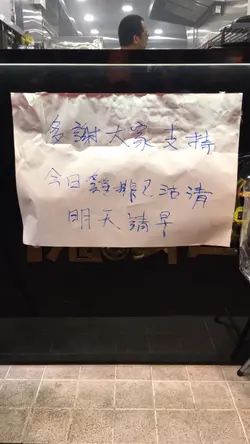 多謝大家支持
今日雞排已沽清
明天請早